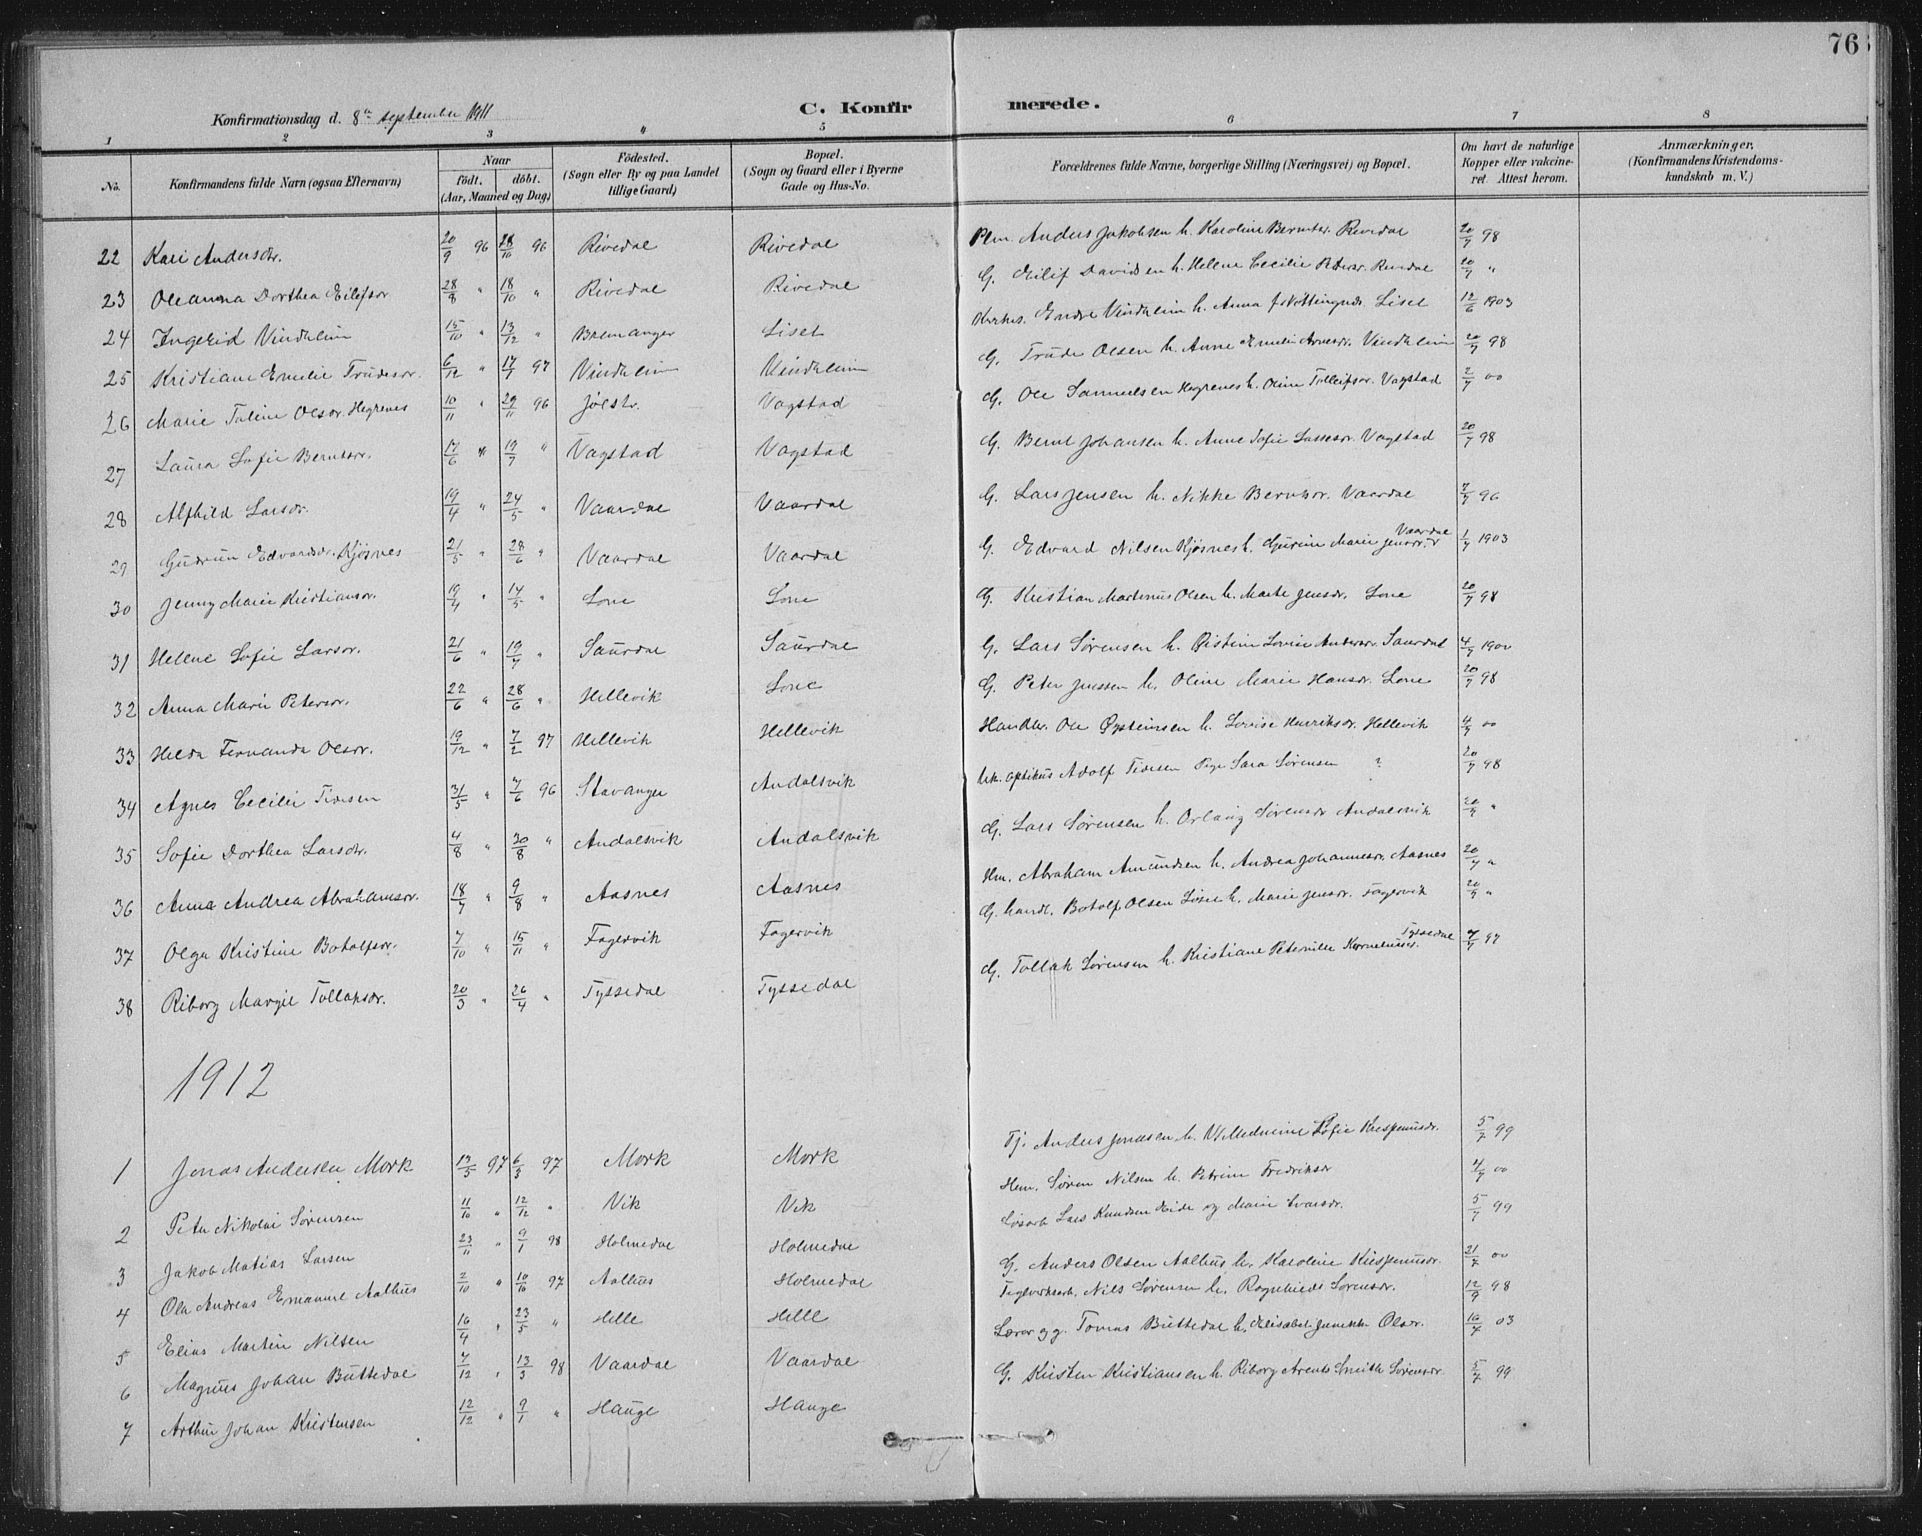 76
Konfirmationsdag d. 8de september 1911
C. Konfirmerede.
1 2 3 4 5 6 7 8
No. Konfirmandens fulde Navn (ogsaa Efternavn) Naar født. døbt. (Aar, Maaned og Dag) Fødested. (Sogn eller By og paa Landet tillige Gaard) Bopæl. (Sogn og Gaard eller i Byerne Gade og Hus-No. Forældrenes fulde Navne, borgerlige Stilling (Næringsvei) og Bopæl. Om havt de naturlige Kopper eller vaccineret Attest herom. Anmærkninger. (Konfirmandens Kristendomskundskab m. V.)
22 Kari Andersdr. 20/9 96 28/10 96 Rivedal Rivedal Plm. Anders Jakobsen h. Karoline Berntsdr. Rivedal 20/7 98
23 Oleanna Dorthea Eilefsdr 28/8 " 18/10 " Rivedal Rivedal G. Eilif Davidsen h. Helene Cecilie Petersdr. Rivedal 20/7 "
24 Ingerid Vindheim 15/10 " 13/12 " Bremanger Liset Endre Vindheim h. Anna Liset 12/6 1903
25 Kristiane Emelie Trudesdr. 6/12 " 17/1 97 Vindheim Vindheim G. Trude Olsen h. Anne Emelie Arnesdr. Vindheim 20/7 98
26 Marie Taline Olsdr Hegrenes 10/11 " 29/11 96 Jølstr. Vagstad G. Ole Samuelsen Hegrenes h. Oline Tolleifsdr. Vagstad 2/7 00
27 Laura Sofie Berntsdr. 17/6 " 19/7 " Vagstad Vagstad G. Bernt Johansen h. Anne Sofie Lassesdr. Vagstad 20/7 98
28 Alfhild Larsdr. 19/4 " 24/5 " Vaardal Vaardal G. Lars Jensen h. Nikke Berntsdr. Vaardal 7/7 96
29 Gudrun Edvardsdr. Kjøsnes 21/5 " 28/6 " Vaardal Vaardal G. Edvard Nilsen Kjøsnes h. Gurine Marie Jensdr. Vaardal 1/7 1903
30 Jenny Marie Kristiansdr. 19/4 " 14/5 " Lone Lone G. Kristian Martinus Olsen h. Marte Jensdr. Lone 20/7 98
31 Helene Sofie Larsdr. 21/6 " 19/7 " Saurdal Saurdal G. Lars Sørensen h. Østine Lovise Andersdr. Saurdal 4/7 1900
32 Anna Marie Petersdr. 22/6 " 28/6 " Hellevik Lone G. Peter Jenssen h. Oline Marie Hansdr. Lone 20/7 98
33 Helda Fernanda Olsdr. 19/12 " 7/2 97 Hellevik Hellevik Handler. Ole Øysteinsen h. Lovise Henriksdr. Hellevik 4/7 00
34 Agnes Cecilie Tidesen 31/5 " 7/6 96 Stavanger Andalsvik Uk. optikus Adolf Tidesen Pige Sara Sørensen ? 20/7 98
35 Sofie Dorthea Larsdr. 4/8 " 30/8 " Andalsvik Andalsvik G. Lars Sørensen h. Orlaug Sørensdr Andalsvik 20/7 "
36 Anna Andrea Abrahamsdr. 18/7 " 9/8 " Aasnes Aasnes Hm. Abraham Amundsen h. Andrea Johannesdr. Aasnes 20/7 "
37 Olga Kristine Botolfsdr. 7/10 " 15/11 " Fagervik Fagervik G. handl. Botolf Olsen h. Marie Jensdr. Fagervik 20/7 "
38 Riborg Margie Tollaksdr. 20/3 " 26/4 " Tyssedal Tyssedal G. Tollak Sørensen h. Kristiane Peternille Korneliusdr. Tyssedal 7/7 97
1912
1 Jonas Andersen Mork 13/5 97 6/3 97 Mork Mork Tj. Anders Jonasen h. Vilhelmine Sofie Krispinusdr. 5/7 99
2 Peter Nikolai Sørensen 11/10 " 12/12 " Vik Vik Hm. Søren Nilsen h. Petrine Fredriksdr 4/7 00
3 Jakob Matias Larsen 23/11 " 9/1 98 Holmedal Holmedal Løsarb Lars Knudsen Eide og Marie Ivarsdr. 5/7 99
4 Ole Andreas Emanuel Aalhus 2/10 " 10/10 97 Aalhus Holmedal G. Anders Olsen Aalhus h. Karoline Krispinusdr. 21/7 00
5 Elias Martin Nilsen 16/4 " 23/5 " Hille Hille Teglverksarb. Nils Sørensen h. Ragnhild Sørensdr. 12/9 98
6 Magnus Johan Buttedal 7/12 " 13/3 98 Vaardal Vaardal Lærer og g. Tomas Buttedal h. Elisabet Olsdr. 16/7 03
7 Arthur Johan Kristensen 12/12 " 9/1 " Hauge Hauge G. Kristen Kristiansen h. Riborg Arentse Smith Sørensdr. 5/7 99